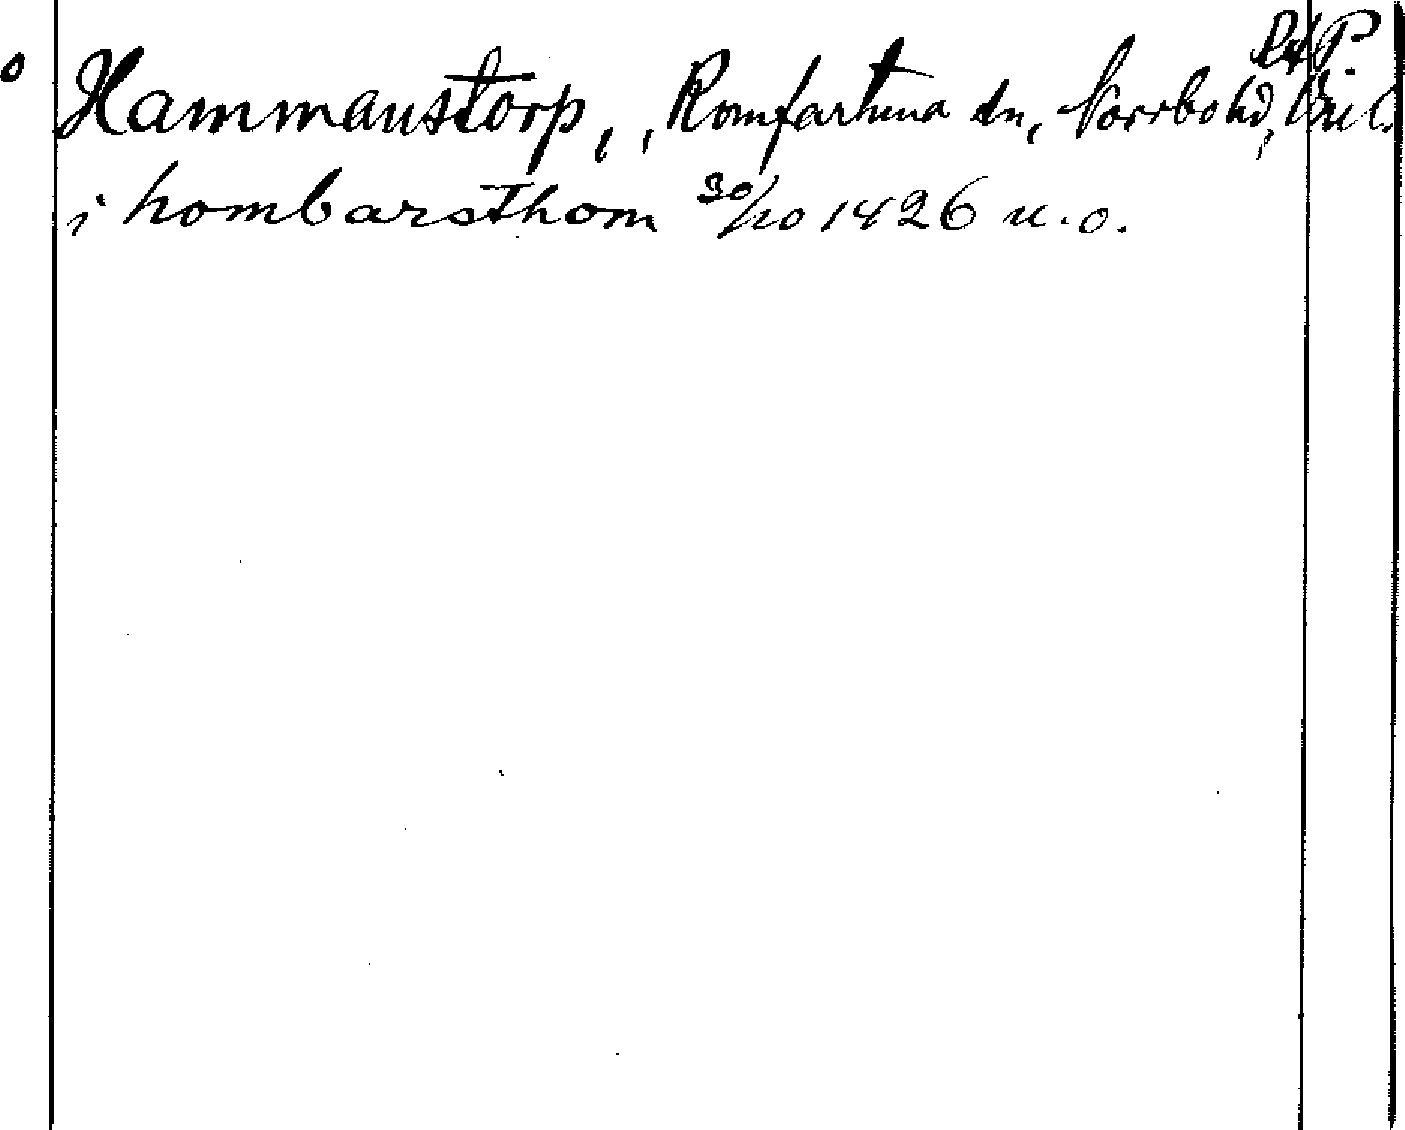 RAP.
Hammanstorp, , Romfartuna sn, Norrbo hd,
i hombarsthom 30/10 1426 u.o.